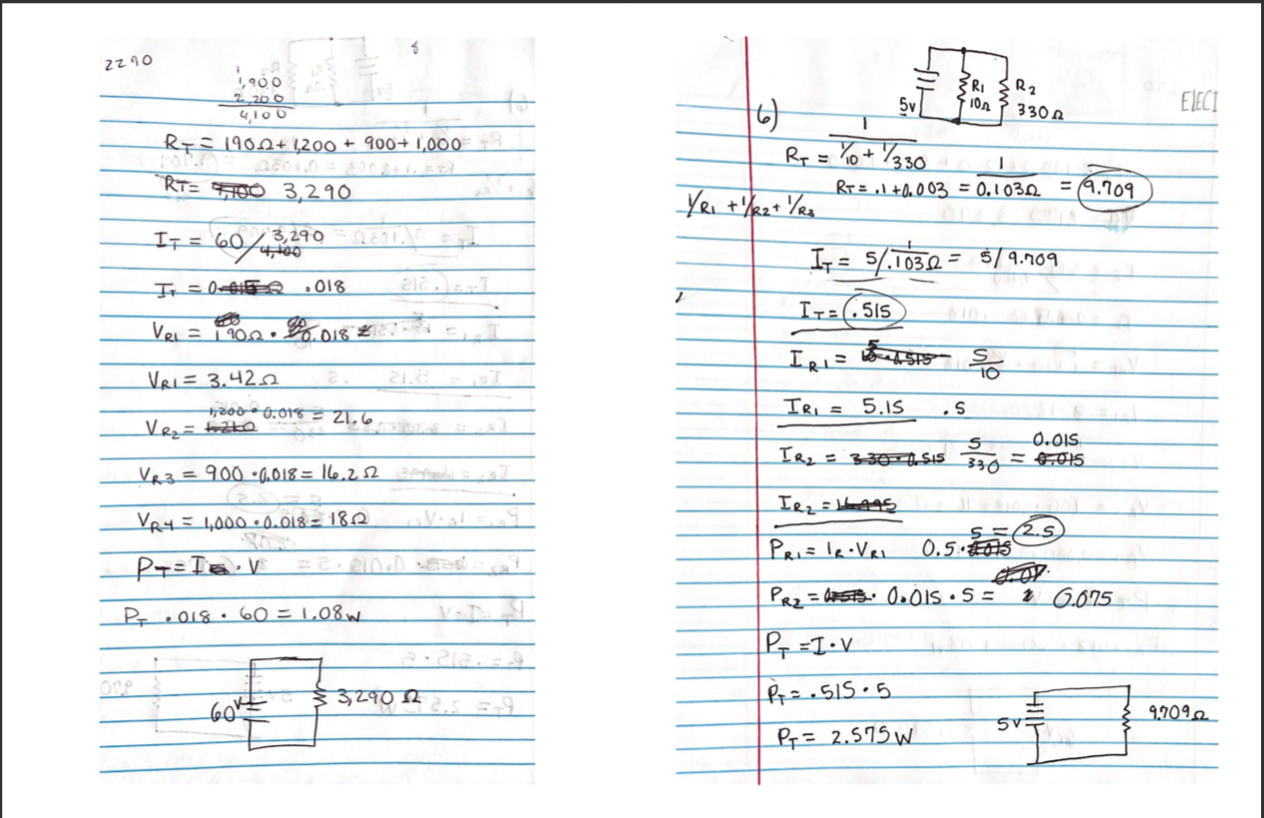 2290
8
1
1,900
2,200
4,100
RT = 190Ω + 1,200 + 900 + 1,000
RT = 4,100 3,290
IT = 60 / 3,290
4,100
IT = 0.015Ω .018
VR1 = 190Ω • 0.018 =
VR1 = 3.42Ω
1,200 • 0.018 = 21.6
VR2 =
VR3 = 900 • 0.018 = 16.2Ω
VR4 = 1,000 • 0.018 = 18Ω
PT = I • V
PT .018 • 60 = 1.08W
60V 3,290 Ω
ELECT
5V R1 10Ω R2 330Ω
6)
RT = 1 / 1/10 + 1/330
RT = .1 + 0.003 = 1 / 0.103Ω = 9.709
1/R1 + 1/R2 + 1/R3
IT = 5 / 1 / .103Ω = 5/9.709
IT = .515
IR1 = 5 / 10
IR1 = 5.15 .5
IR2 = 330 • 0.515 5 / 330 = 0.015
0.015
IR2 = 16.995
PR1 = IR • VR1 0.5 • 5 = 2.5
PR2 = 0.515 • 0.015 • 5 = 0.075
PT = I • V
PT = .515 • 5
PT = 2.575 W
5V 9.709Ω